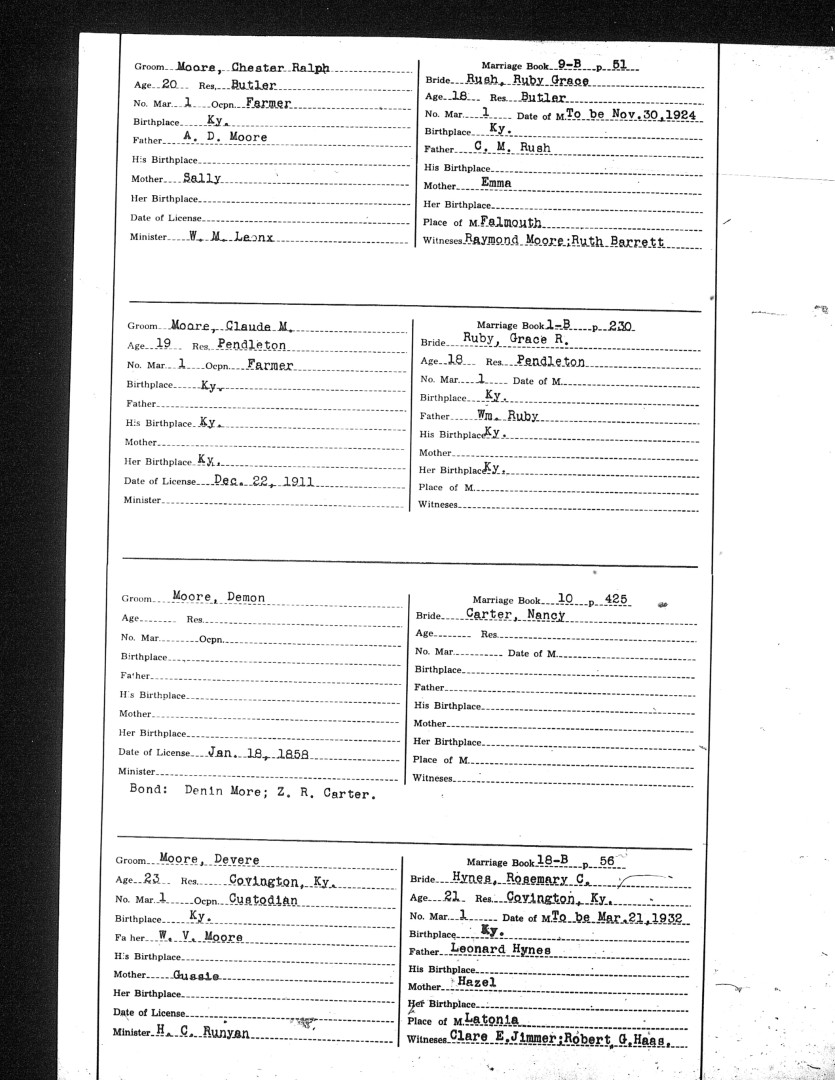 Groom Moore, Chester Ralph
Age 20 Res. Butler
No. Mar. 1 Ocpn. Farmer
Birthplace Ky.
Father A. D. Moore
His Birthplace
Mother Sally
Her Birthplace
Date of License
Minister W. M. Leonx
Marriage Book 9-B p. 51
Bride Rush, Ruby Grace
Age 18 Res. Butler
No. Mar. 1 Date of M. To be Nov.30,1924
Birthplace Ky.
Father C. M. Rush
His Birthplace
Mother Emma
Her Birthplace
Place of M. Falmouth
Witneses Raymond Moore;Ruth Barrett
Groom Moore, Claude M.
Age 19 Res. Pendleton
No. Mar. 1 Ocpn. Farmer
Birthplace Ky.
Father
His Birthplace Ky.
Mother
Her Birthplace Ky.
Date of License Dec. 22, 1911
Minister
Marriage Book 1-B p. 230
Bride Ruby, Grace R.
Age 18 Res. Pendleton
No. Mar. 1 Date of M.
Birthplace Ky.
Father Wm. Ruby
His Birthplace Ky.
Mother
Her Birthplace Ky.
Place of M.
Witneses
Groom Moore, Demon
Age Res.
No. Mar. Ocpn.
Birthplace
Father
His Birthplace
Mother
Her Birthplace
Date of License Jan. 18, 1858
Minister
Bond: Denin More; Z. R. Carter.
Marriage Book 10 p. 425
Bride Carter, Nancy
Age Res.
No. Mar. Date of M.
Birthplace
Father
His Birthplace
Mother
Her Birthplace
Place of M.
Witneses
Groom Moore, Devere
Age 23 Res. Covington, Ky.
No. Mar. 1 Ocpn. Custodian
Birthplace Ky.
Father W. V. Moore
His Birthplace
Mother Gussie
Her Birthplace
Date of License
Minister H. C. Runyan
Marriage Book 18-B p. 56
Bride Hynes, Rosemary C.
Age 21 Res. Covington, Ky.
No. Mar. 1 Date of M. To be Mar.21,1932
Birthplace Ky.
Father Leonard Hynes
His Birthplace
Mother Hazel
Her Birthplace
Place of M. Latonia
Witneses Clare E.Jimmer;Robert G.Haas.